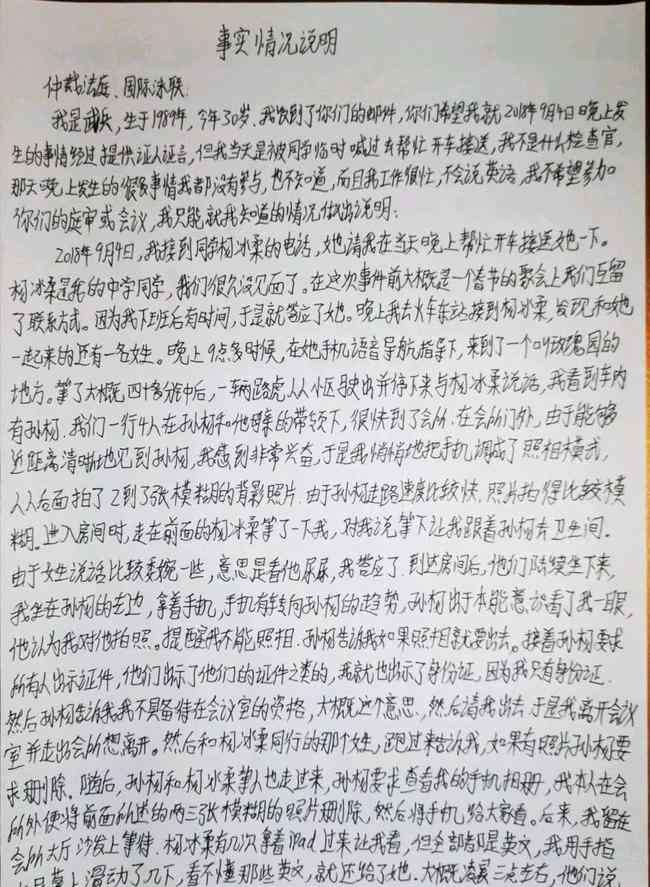 事实情况说明
仲裁法庭、国际泳联:
我是 ，生于1989年，今年30岁.我收到了你们的邮件，你们希望我就2018年9月4日晚上发
生的事情经过提供证人证言，但我当天是被同学临时喊过去帮忙开车接送，我不是什么检查官，
那天晚上发生的很多事情我都没有参与，也不知道，而且我工作很忙，不会说英语，我不希望参加
你们的庭审或会议，我只能就我知道的情况做出说明:
2018年9月4日，我接到同学杨冰柔的电话，她请我在当天晚上帮忙开车接送她一下。
杨冰柔是我的中学同学，我们很久没见面了。在这次事件前大概是一个春节的聚会上我们互留
了联系方式。因为我下班后有时间，于是就答应了她。晚上我去火车东站接到杨冰柔，发现和她
一起来的还有一名女生。晚上9点多时候，在她手机语音导航指导下，来到了一个叫玫瑰园的
地方。等了大概四十多分钟后，一辆路虎从小区驶出并停下来与杨冰柔说话，我看到车内
有孙杨.我们一行4人在孙杨和他母亲的带领下，很快到了会所.在会所门外，由于能够
近距离清晰地见到孙杨，我感到非常兴奋，于是我悄悄地把手机调成了照相模式，
从后面拍了2到了3张模糊的背影照片.由于孙杨走路速度比较快.照片拍得比较模
糊。进入房间时，走在前面的杨冰柔等了一下我，对我说等下让我跟着孙杨去卫生间.
由于女生说话比较委婉一些，意思是看他尿尿，我答应了.到达房间后，他们陆续坐下来，
我坐在孙杨的左边，拿着手机，手机有转向孙杨的趋势，孙杨出于本能意识看了我一眼，
他认为我对他拍照。提醒我不能照相.孙杨告诉我如果照相就要出去。接着孙杨要求
所有人出示证件，他们出示了他们的证件之类的，我就也出示了身份证，因为我只有身份证.
然后孙杨告诉我我不具备待在会议室的资格，大概这个意思，然后请我出去.于是我离开会议
室并走出会所想离开。然后和杨冰柔同行的那个女生，跑过来告诉我，如果有照片孙杨要
求删除。随后，孙杨和杨冰柔等人也走过来，孙杨要求查看我的手机相册，我本人在会
所外便将前面所述的两三张模糊的照片删除，然后将手机给大家看。后来，我留在
会所大厅沙发上等待.杨冰柔有几次拿着iPad过来让我看，但全部都是英文，我用手指
滑动了几下，看不懂那些英文，就还给了她.大概凌晨三点左右，他们说，